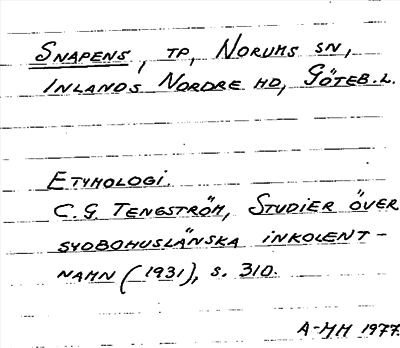 SNAPENS, TP, NORUMS SN,
INLANDS NORDRE HD, GÖTEB.L.
ETYMOLOGI.
C.G. TENGSTRÖM, STUDIER ÖVER
SYDBOHUSLÄNSKA INKOLENT-
NAMN (1931), S. 310.
A-HH 1977.